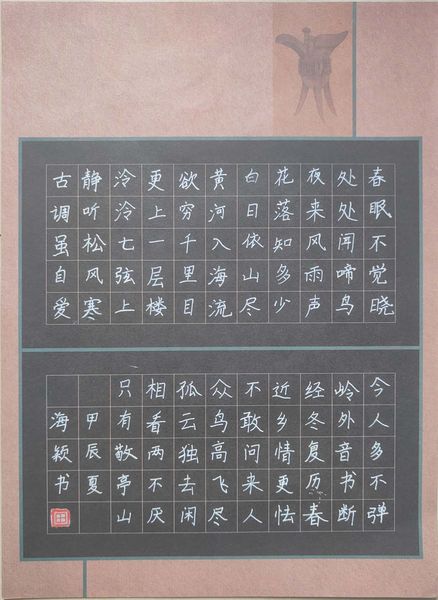 春眠不觉晓
处处闻啼鸟
夜来风雨声
花落知多少
白日依山尽
黄河入海流
欲穷千里目
更上一层楼
泠泠七弦上
静听松风寒
古调虽自爱
今人多不弹
岭外音书断
经冬复历春
近乡情更怯
不敢问来人
众鸟高飞尽
孤云独去闲
相看两不厌
只有敬亭山
甲辰夏
海颖书